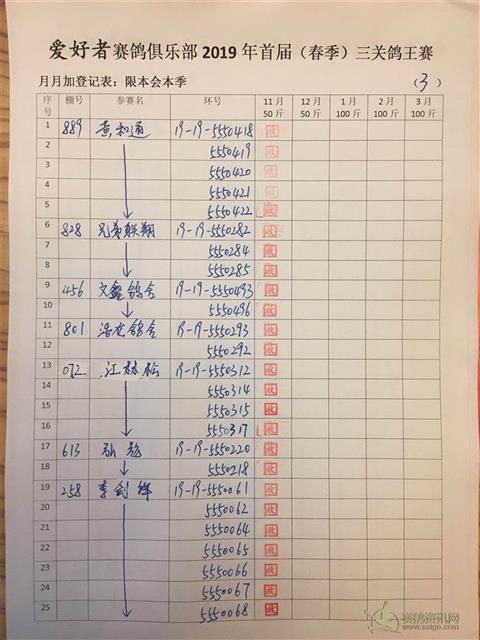 爱好者赛鸽俱乐部 2019 年首届（春季）三关鸽王赛
月月加登记表：限本会本季 （3）
序号 棚号 参赛名 环号 11月50斤 12月50斤 1月100斤 2月100斤 3月100斤
1 889 黄和通 19-19-5550418
2 5550419
3 5550420
4 5550421
5 5550422
6 828 兄弟联翔 19-19-5550282
7 5550284
8 5550285
9 456 文鑫鸽舍 19-19-5550493
10 5550496
11 801 浩龙鸽舍 19-19-5550293
12 5550292
13 072 江林松 19-19-5550312
14 5550314
15 5550315
16 5550317
17 613 19-19-5550220
18 5550218
19 258 李剑锋 19-19-5550061
20 5550062
21 5550064
22 5550065
23 5550066
24 5550067
25 5550068
赛鸽资讯网
www.saige.com